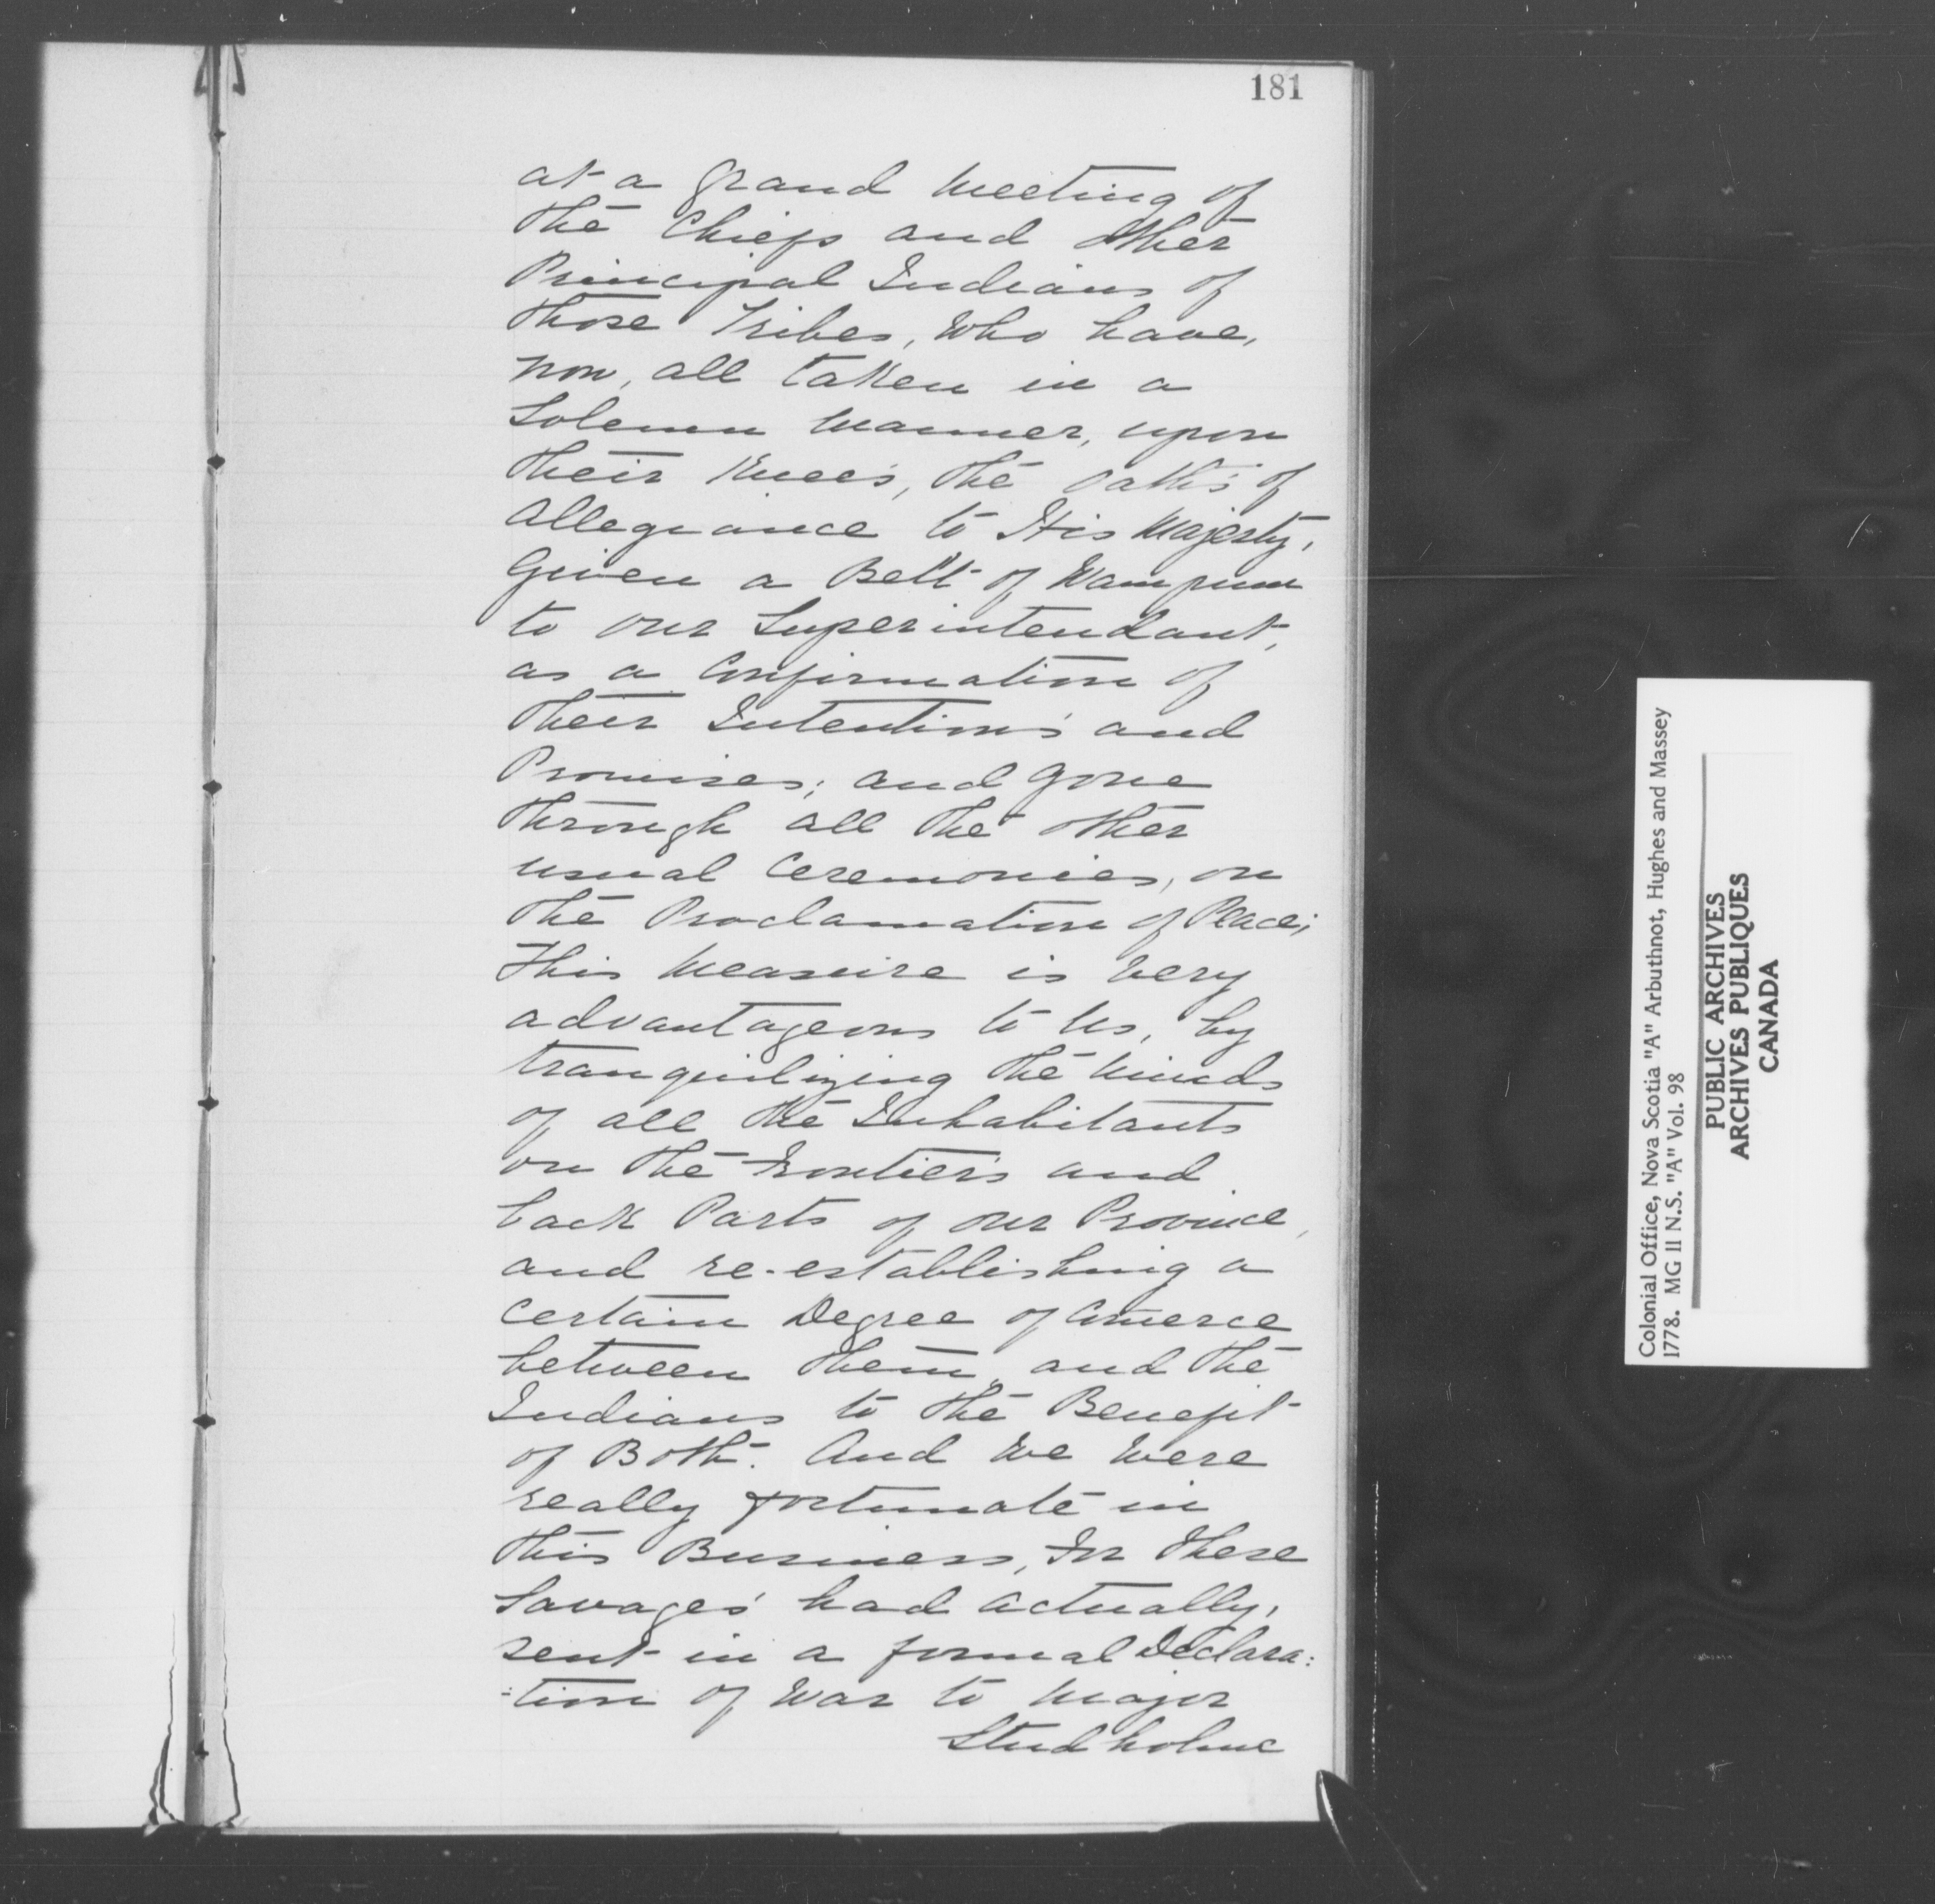 181
at a Grand Meeting of
the Chiefs and other
Principal Indians of
those Tribes, Who have,
now, all taken in a
Solemn Manner, upon
their Knees, the oaths of
Allegiance to His Majesty,
Given a Belt of Wampum
to our Superintendant,
as a Confirmation of
their Intentions and
Promises; and gone
through all the other
usual Ceremonies, on
the Proclamation of Peace;
This Measure is very
advantageous to Us, by
tranquilizing the Minds
of all the Inhabitants
on the Frontiers and
back Parts of our Province,
and re-establishing a
certain Degree of
between them, and the
Indians to the Benefit
of Both. And We Were
really fortunate in
this Business, For these
Savages had actually,
sent in a formal Declara:
:tion of War to Major
Studholme
Colonial Office, Nova Scotia "A" Arbuthnot, Hughes and Massey
1778. MG 11 N.S. "A" Vol. 98
PUBLIC ARCHIVES
ARCHIVES PUBLIQUES
CANADA